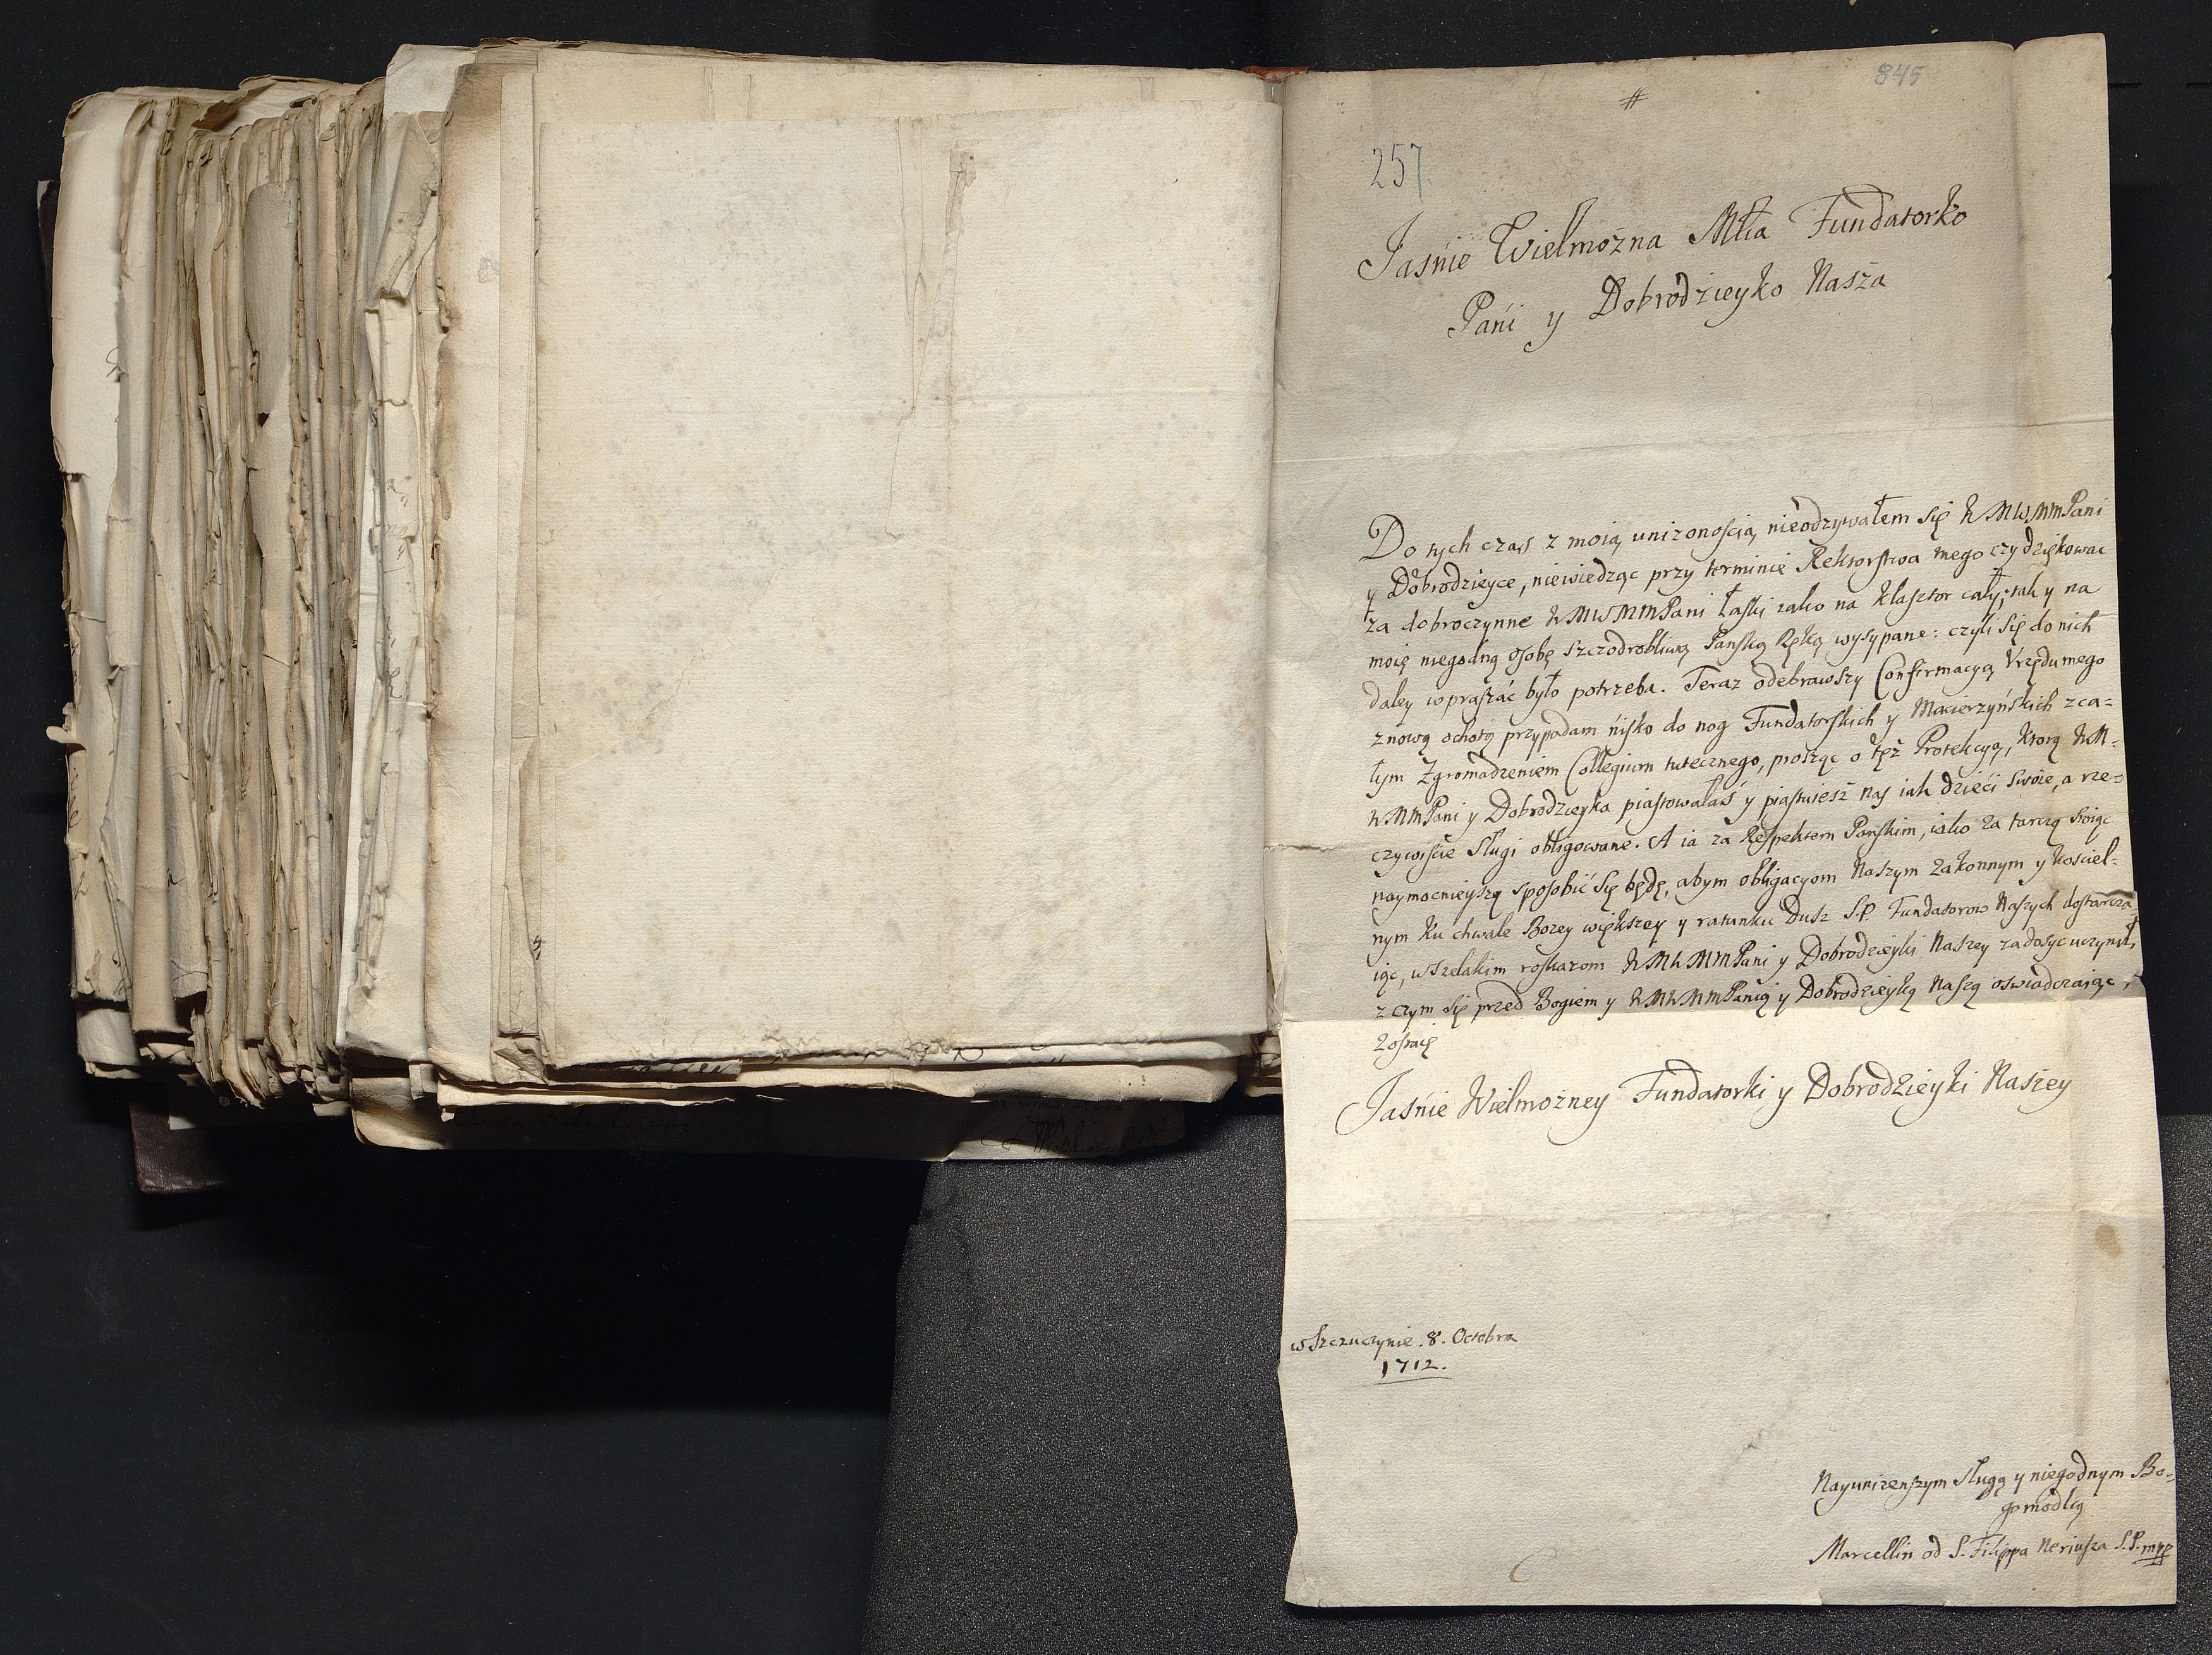 845
#
257
Jaśnie Wielmożna Mścia Fundatorko
Pani y Dobrodzieyko Nasza
Do tych czas z moią uniżonością nieodzywałem się WMWMMPani
y Dobrodzieyce, niewiedząc przy terminie Rektorstwa mego czy dziękowac
za dobroczynne WMWMMPani łaski iako na Klasztor cały; tak y na
moię niegodną osobę szczodrobliwą Panską Ręką wysypane: czyli się do nich
daley wpraszać było potrzeba. Teraz odebrawszy Confirmacyą Urzędu mego
znową ochotą przypadam nisko do nog Fundatorskich y Macierzyńskich z ca=
łym Zgromadzeniem Collegium tutecznego, prosząc o tęż Protekcyą, ktorą WM=
WMMPani y Dobrodzieyka piastowałaś y piastuiesz nas iak dzieći swoie, a rze=
czywiście Sługi obligowane. A ia za Respektem Panskim, iako za tarczą stoiąc
naymocnieyszą sposobić się będę, abym obligacyom Naszym Zakonnym y Kosciel=
nym Ku chwale Bozey większey y ratunku Dusz S.P. Fundatorow Naszych dostarcza=
iąc, wszelakim roskazom WMWMMPani y Dobrodzieyki Naszey zadosyc uczynił,
z czym się przed Bogiem y WMWMMPanią y Dobrodzieyką Naszą oswiadczaiąc,
Zostaię
Jaśnie Wielmożney Fundatorki y Dobrodzieyki Naszey
w Szczuczynie. 8. Octobra
1712.
Nayunizenszym Sługą y niegodnym Bo=
gomodlcą
Marcellin od S. Filippa Neriusza S.P. mpp